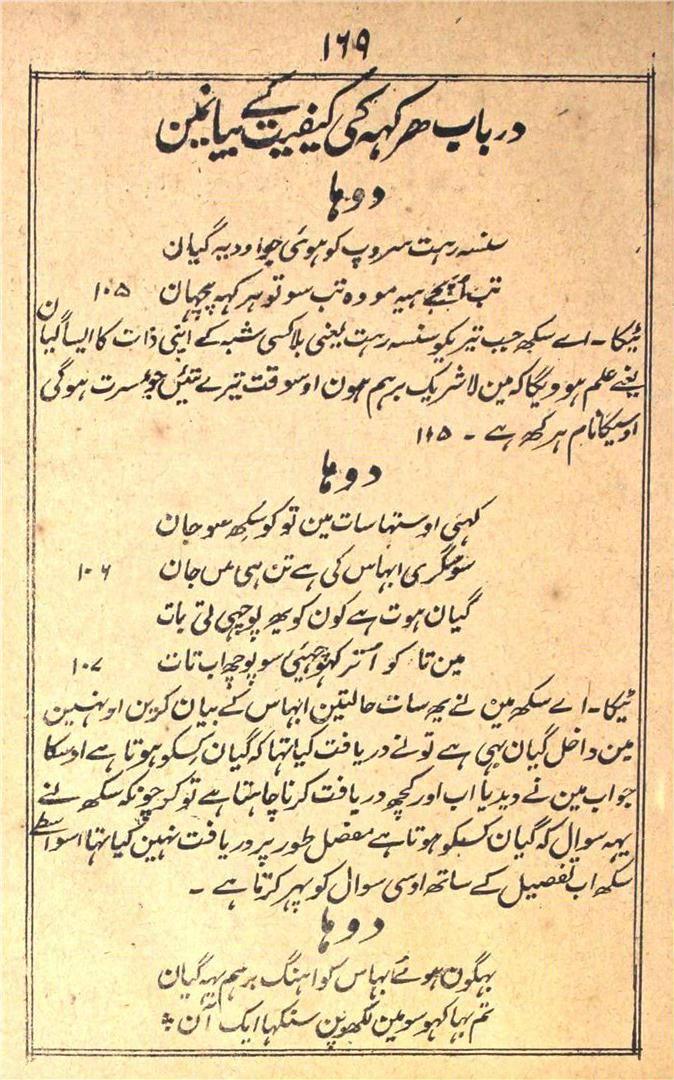 ۱۶۹
در باب هرکهه کی کیفیت کے بیانمین
دوہا
سنسہ رہت سروپ کو ہوئی جو اودیہ گیان
تب اُپجے ہیہ مودہ تب سو تو ہرکہہ پچہان ۱۰۵
ٹیکا۔ اے سکھ جب تیریکو سنسہ رہت یعنی بلا کسی شبہ کے اپنی ذات کا ایسا گیان
یعنے علم ہوویگا کہ مین لاشریک برہم ہون اوسوقت تیرے تئین جو مسرت ہوگی
اوسیکا نام ہرکھ ہے ۔ ۱۰۵
دوہا
کہئی اوستہا سات مین توکو سکھ سوجان
سوسگری ابہاس کی ہے تن ہی مین جان ۱۰۶
گیان ہوت ہے کون کو یھ پوچہی تی بات
مین تا کو اُتر کہو چہئی سو پوچھ اب تات ۱۰۷
ٹیکا۔ اے سکھ مین نے یھ سات حالتین ابہاس کے بیان کوین اونہین
مین داخل گیان بہی ہے تونے دریافت کیا تہا کہ گیان کسکو ہوتا ہے اوسکا
جواب مین نے دیدیا اب اور کچھ دریافت کرنا چاہتا ہے تو کر چونکہ سکھ نے
یہہ سوال کہ گیان کسکو ہوتا ہے مفصل طور پر دریافت نہین کیا تہا اسواسطے
سکھ اب تفصیل کے ساتھ اوسی سوال کو پہر کرتا ہے ۔
دوہا
بہگون ہوئے بہاس کو اہنگ برہم یہہ گیان
تم بہا کہو سو مین لکھوین سنکہا ایک آن